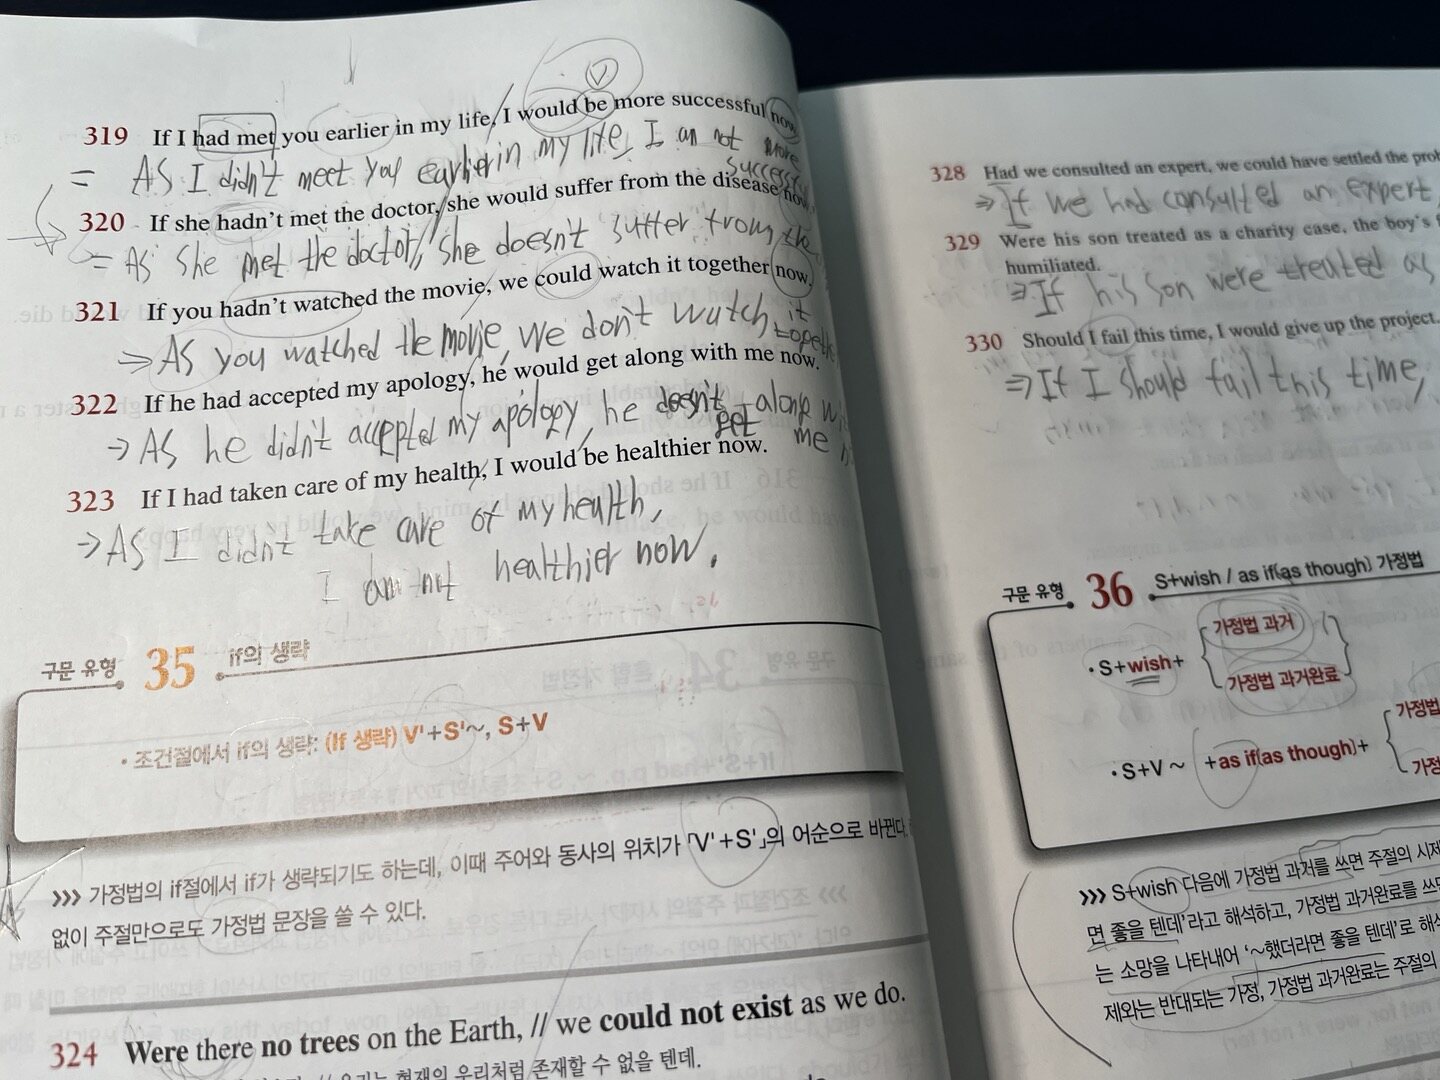 319 If I had met you earlier in my life, I would be more successful now
= AS I didn't meet you earlier in my life, I am not more
success
320 If she hadn't met the doctor, she would suffer from the disease now.
= AS she met the doctor, she doesn't suffer from the
321 If you hadn't watched the movie, we could watch it together now.
⇒ AS you watched the movie, we don't watch it
322 If he had accepted my apology, he would get along with me now.
→ AS he didn't accepted my apology, he doesn't get along
me
323 If I had taken care of my health, I would be healthier now.
→ AS I didn't take care of my health,
I am not healthier now.
구문 유형 35 if의 생략
• 조건절에서 if의 생략: (If 생략) V'+S'~, S+V
>>> 가정법의 if절에서 if가 생략되기도 하는데, 이때 주어와 동사의 위치가 「V'+S'」의 어순으로 바뀐다.
없이 주절만으로도 가정법 문장을 쓸 수 있다.
324 Were there no trees on the Earth, // we could not exist as we do.
우리처럼 존재할 수 없을 텐데.
328 Had we consulted an expert, we could have settled the
⇒ If we had consulted an expert,
329 Were his son treated as a charity case, the boy's
humiliated.
⇒ If his son were treated as
330 Should I fail this time, I would give up the project.
⇒ If I should fail this time,
구문 유형 36 S+wish / as if(as though) 가정법
• S+wish+
가정법 과거
가정법 과거완료
• S+V ~ +as if(as though)+
가정법
>>> S+wish 다음에 가정법 과거를 쓰면 주절의
면 좋을 텐데'라고 해석하고, 가정법 과거완료를
는 소망을 나타내어 '~했더라면 좋을 텐데'로
제와는 반대되는 가정, 가정법 과거완료는 주절의